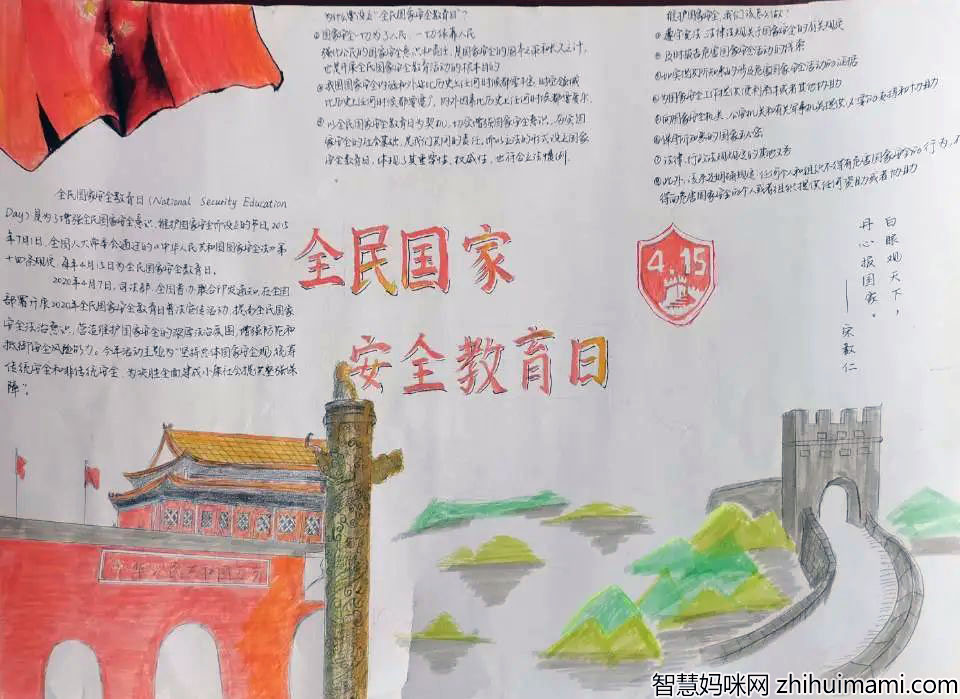 为什么要设立“全民国家安全教育日”?
①国家安全一切为了人民,一切依靠人民
强化公民的国家安全意识和责任,是国家安全的固本之策和长久之计,
也是开展全民国家安全教育活动的根本目的
②我国国家安全的内涵和外延比历史上任何时候都要丰富,时空领域
比历史上任何时候都要宽广,内外因素比历史上任何时候都要复杂.
③以全民国家安全教育日为契机,切实增强国家安全意识,夯实国
家安全的社会基础,是我们共同的责任.所以立法的形式设立国家
安全教育日,体现了其重要性、权威性,也符合立法惯例.
维护国家安全,我们该怎么做?
①遵守宪法、法律法规关于国家安全的有关规定
②及时报告危害国家安全活动的线索
③如实提供所知悉的涉及危害国家安全活动的证据
④为国家安全工作提供便利条件或者其他协助
⑤向国家安全机关、公安机关和有关军事机关提供必要的支持和协助
⑥保守所知悉的国家秘密
⑦法律、行政法规规定的其他义务
⑧此外,该条还明确规定:任何个人和组织不得有危害国家安全的行为,不
得向危害国家安全的个人或者组织提供任何资助或者协助
全民国家安全教育日(National Security Education
Day)是为了增强全民国家安全意识,维护国家安全而设立的节日.2015
年7月1日,全国人大常委会通过的《中华人民共和国国家安全法》第
十四条规定,每年4月15日为全民国家安全教育日。
2020年4月7日,司法部、全国普办联合印发通知,在全国
部署开展2020年全民国家安全教育日普法宣传活动,提高全民国家
安全法治意识,营造维护国家安全的浓厚法治氛围,增强防范和
抵御安全风险能力。今年活动主题为“坚持总体国家安全观,统筹
传统安全和非传统安全,为决胜全面建成小康社会提供坚强保
障”。
全民国家
安全教育日
4.15
白眼观天下,
丹心报国家。
——宋教仁
中华人民共和国万岁
智慧妈咪网 zhihuimami.com